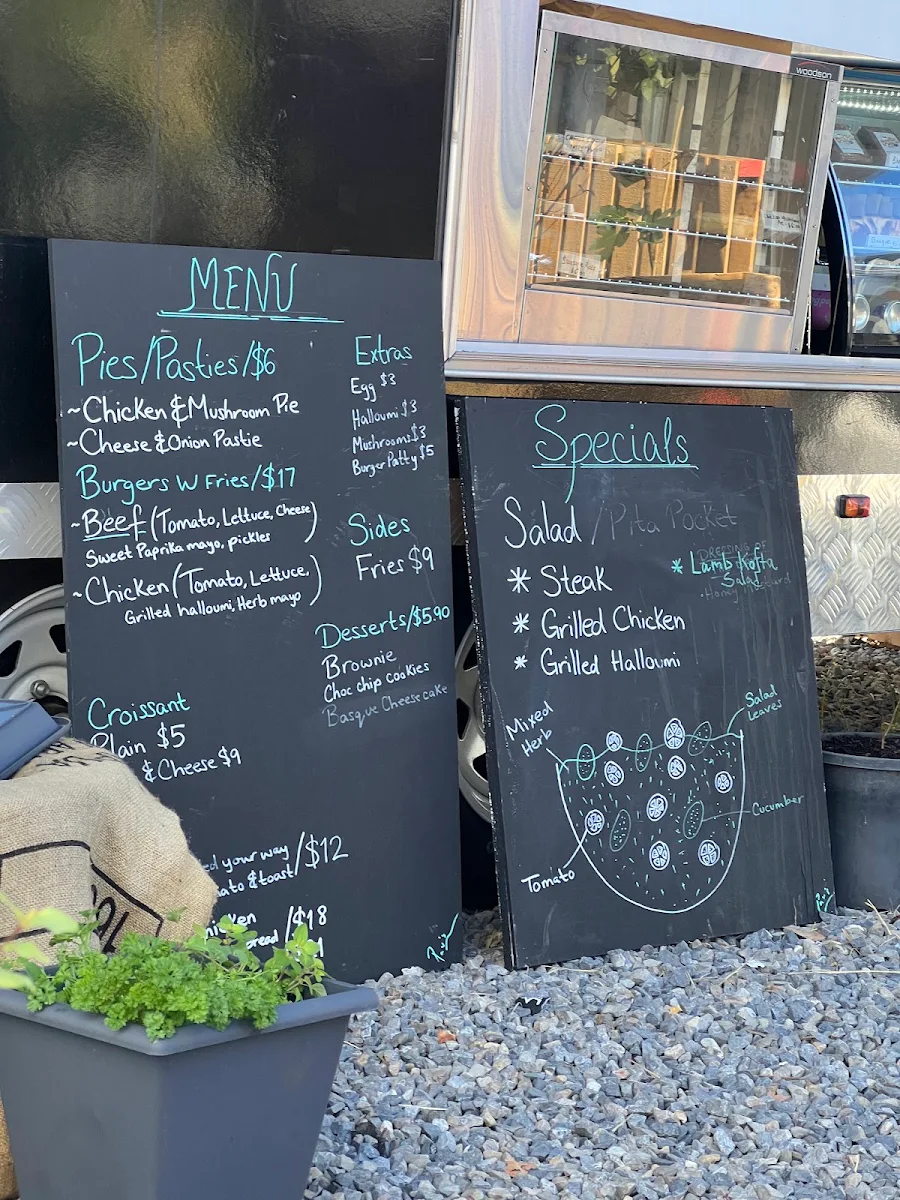 MENU
Pies/Pasties/$6
~Chicken & Mushroom Pie
~Cheese & Onion Pastie
Burgers W Fries/$17
~Beef (Tomato, Lettuce, Cheese)
Sweet Paprika mayo, pickles
~Chicken (Tomato, Lettuce,
Grilled halloumi, Herb mayo)
Croissant
Plain $5
& Cheese $9
your way /$12
& toast
/$18
Extras
Egg $3
Halloumi $3
Mushrooms $3
Burger Patty $5
Sides
Fries $9
Desserts/$5.90
Brownie
Choc chip cookies
Basque Cheesecake
Specials
Salad / Pita Pocket
* Steak
* Grilled Chicken
* Grilled Halloumi
* Lamb Kofta
Salad
Mixed
Herb
Salad
Leaves
Cucumber
Tomato
woodson